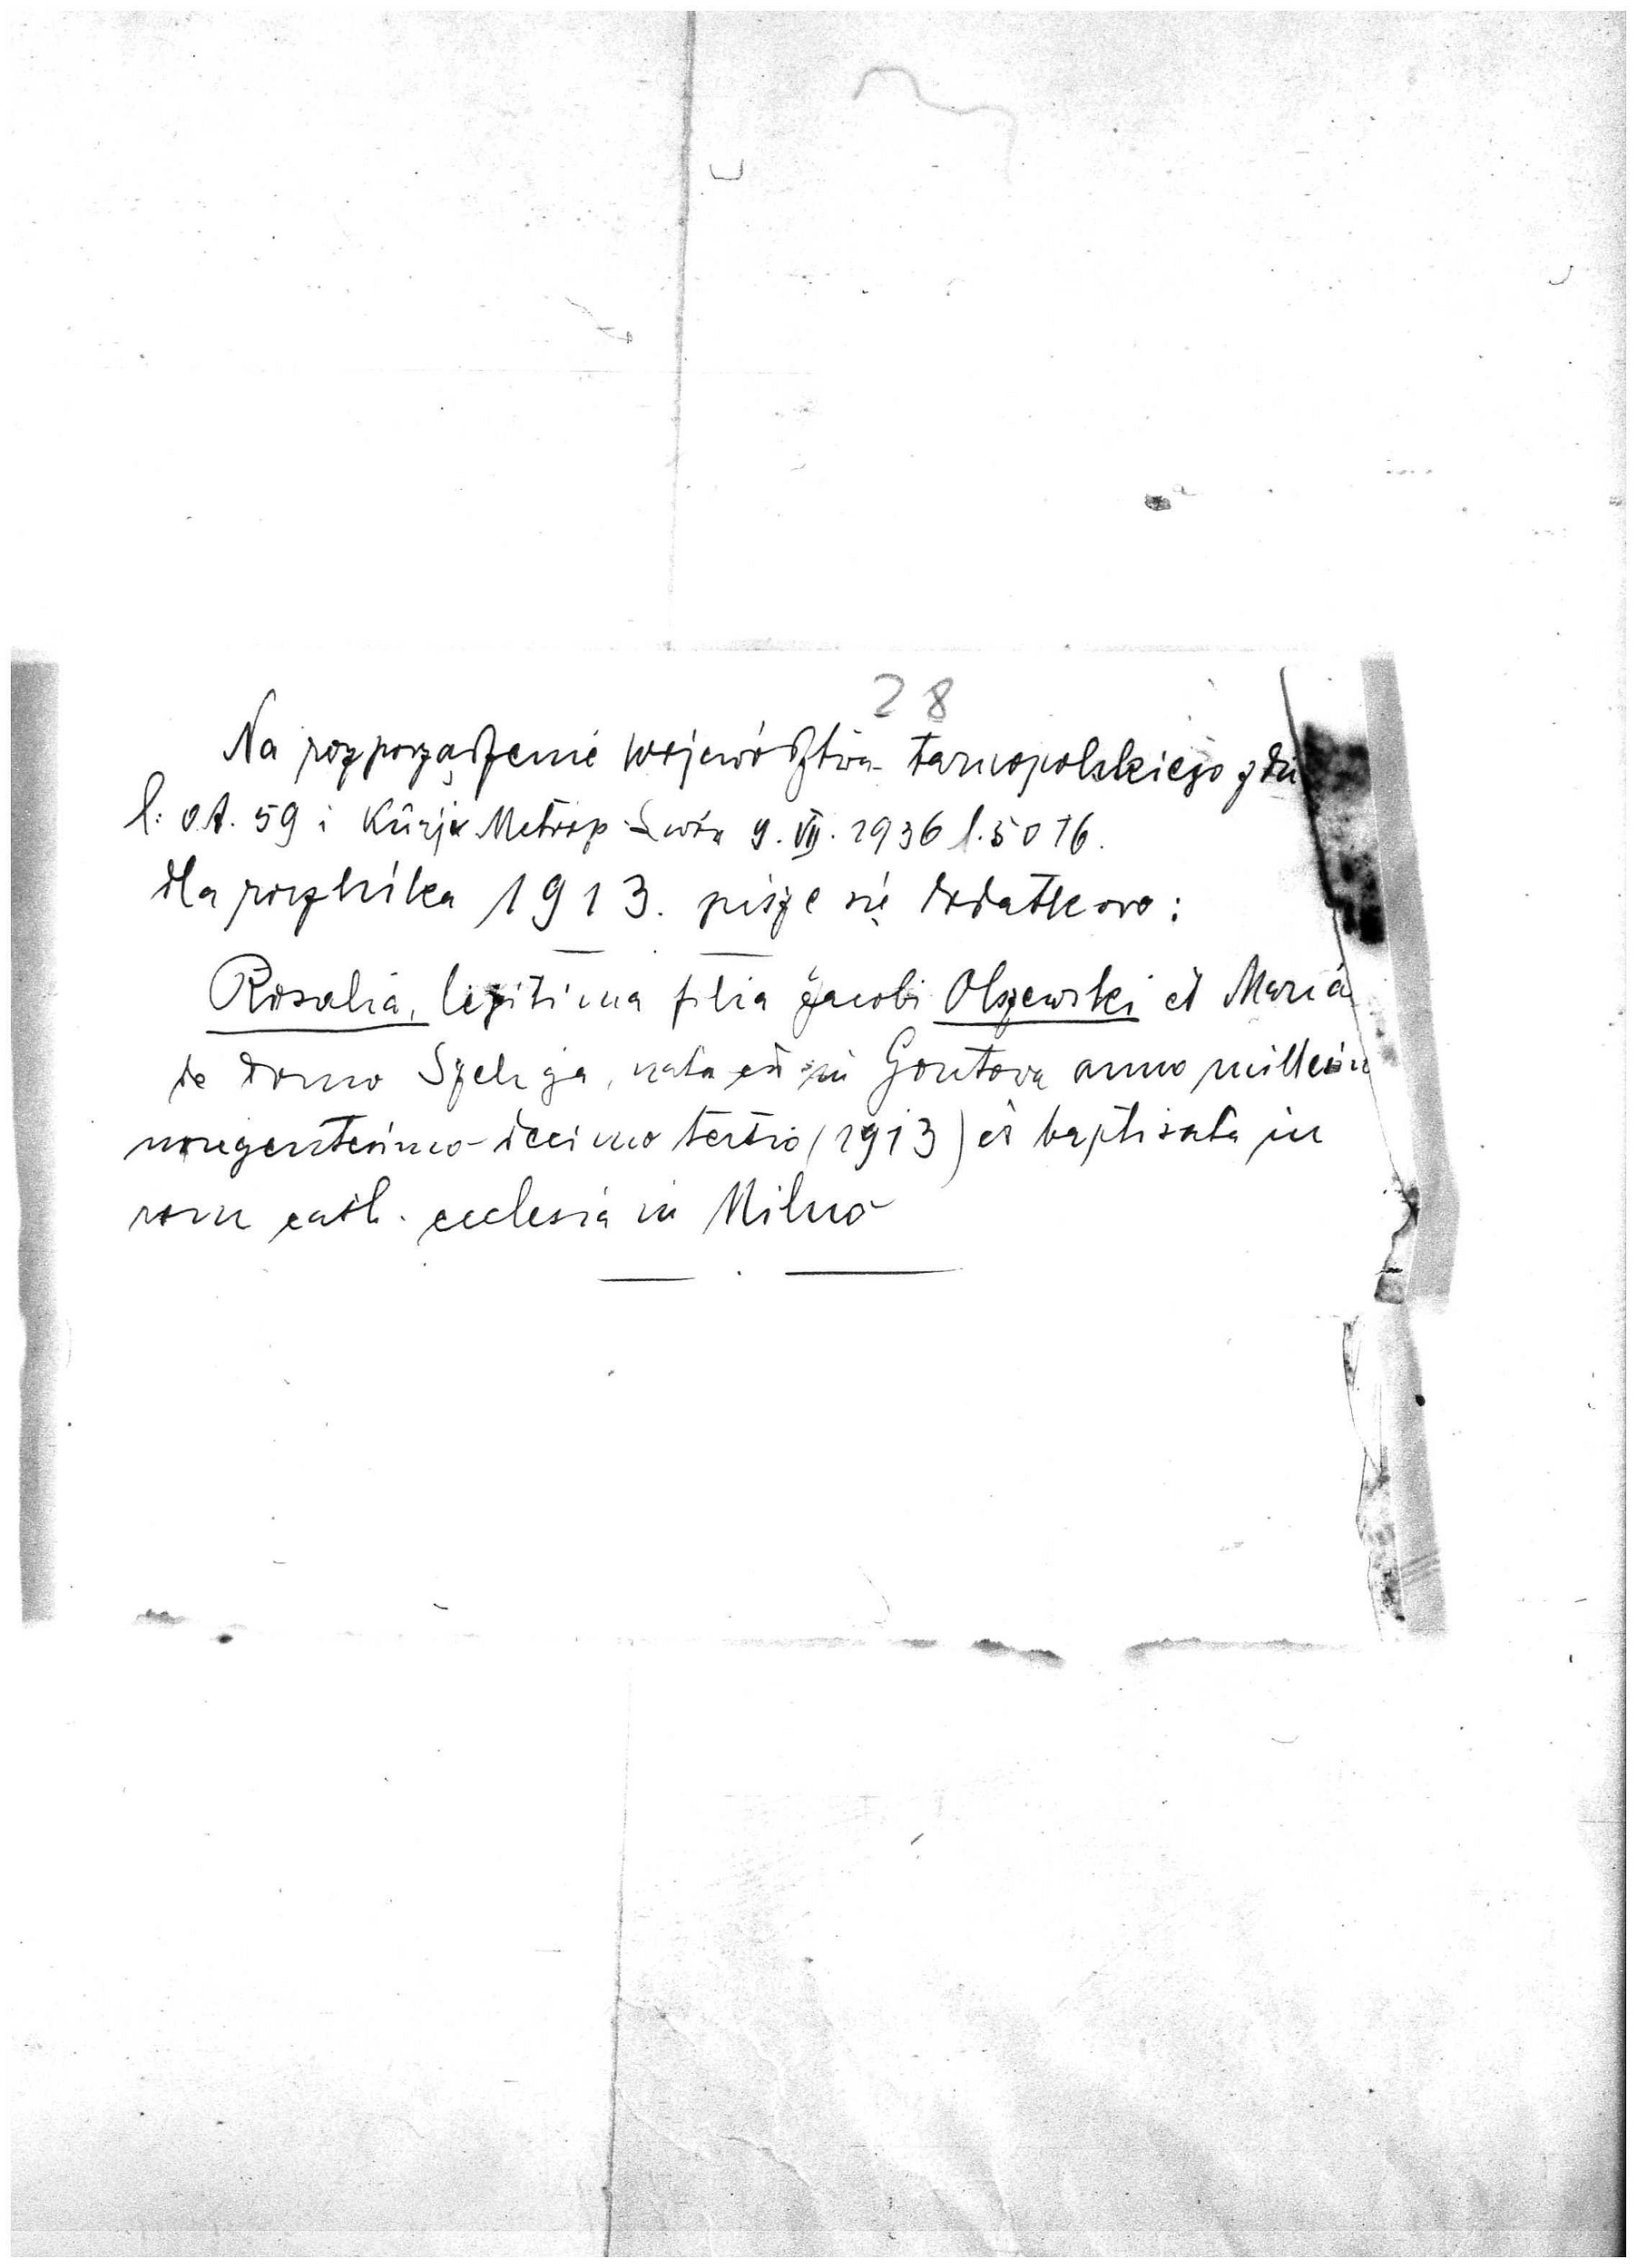 28
Na rozporządzenie województwa tarnopolskiego z dn
l: o.t. 59 i Kurji Metrop. Lwów 9. VII. 1936 l. 5076.
dla rocznika 1913. pisze się dodatkowo:
Rosalia, legitima filia Jacobi Olszewski et Maria
de domo Szeliga, nata est in Gontova anno millesim
nongentesimo decimo tertio (1913) et baptisata in
rom cath. ecclesia in Milno